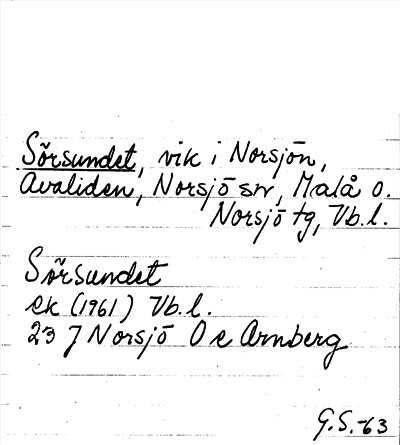 Sörsundet, vik i Norsjön,
Avaliden, Norsjö sn, Malå o.
Norsjö tg, Vb.l.
Sörsundet
ek (1961) Vb.l.
23 J Norsjö O e Arnberg
G.S.-63